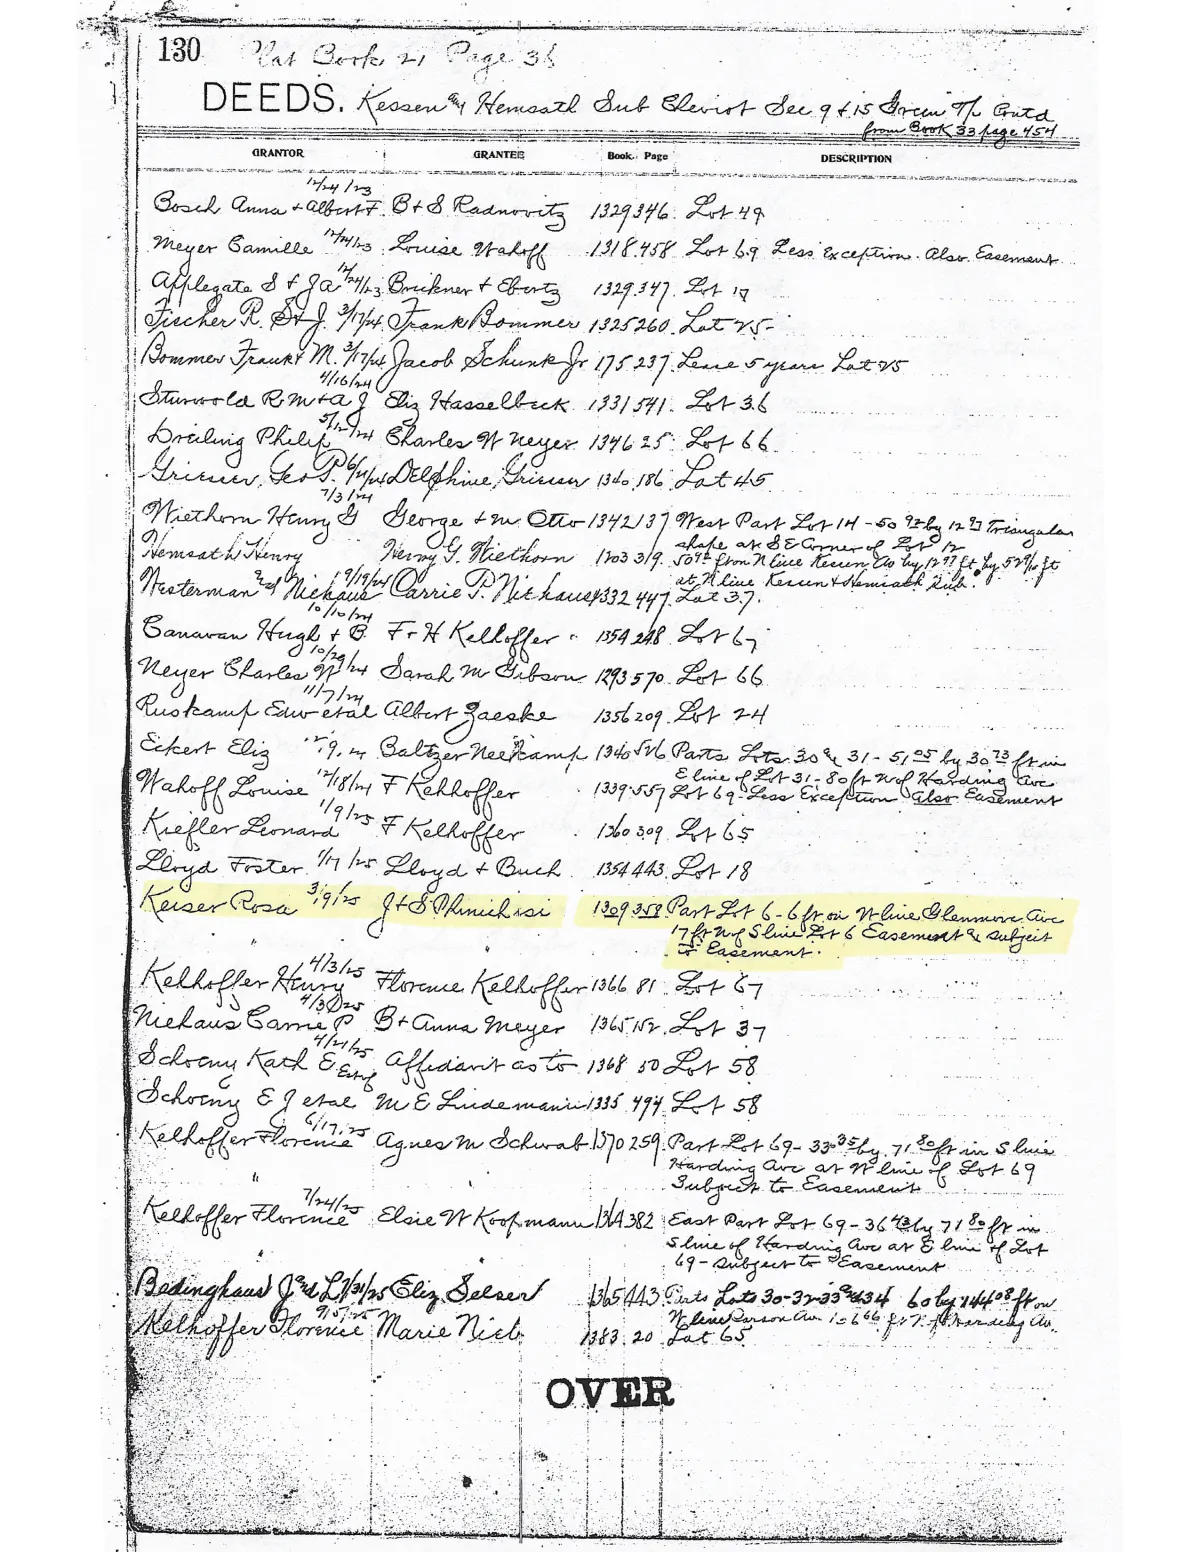 130 Plat Book 21 Page 36
DEEDS. Kessen & Hemsath Sub Cheviot Sec 9 & 15 Green Tp Contd
from Book 33 page 454
GRANTOR GRANTEE Book. Page DESCRIPTION
12/24/23
Bosch Anna + Albert F. B + S Radnovitz 1329 346 Lot 49
Meyer Camille 12/24/23 Louise Wahoff 1318 458 Lot 69 Less Exception. Also Easement
Applegate S & J A 12/24/23 Bruckner + Ebertz 1329 347 Lot 17
Fischer R. St J. 3/17/24 Frank Bommer 1325 260 Lot 25
Bommer Frank & M. 3/17/24 Jacob Schunk Jr 175 237 Lease 5 years Lot 25
4/16/24
Sturwold R M + A J Eliz Hasselbeck 1331 541 Lot 36
5/12/24
Dreiling Philip Charles W Neyer 1346 25 Lot 66
Griesser, Geo P. 6/11/24 Delphine Griesser 1340 186 Lot 45
7/3/24
Wiethorn Henry G George + M Otto 1342 137 West Part Lot 14 - 50 92 by 12 97 Triangular
shape at S E Corner of Lot 12
Hemsath Henry Henry G. Wiethorn 1203 319 50 92 ft on N line Kessen Av by 12 97 ft by 52 9/10 ft
at N line Kessen & Hemsath Sub.
Westerman and Niehaus 9/19/24 Carrie P. Niehaus 1332 447 Lot 37.
10/10/24
Canavan Hugh + B. F + H Kelhoffer 1354 248 Lot 67
Neyer Charles W 10/20/24 Sarah M Gibson 1293 570 Lot 66
11/7/24
Ruskamp Edw et al Albert Zaeske 1356 209 Lot 24
Eckert Eliz 12/9/24 Baltzer Neekamp 1340 526 Parts Lots 30 & 31 - 51 05 by 30 73 ft in
E line of Lot 31 - 80 ft N of Harding Ave
Wahoff Louise 12/18/24 F Kehhoffer 1339 557 Lot 69 - Less Exception Also Easement
Kiefler Leonard 1/9/25 F Kelhoffer 1360 309 Lot 65
Lloyd Foster 1/17/25 Lloyd + Buch 1354 443 Lot 18
Keiser Rosa 3/9/25 J + S Phinichisi 1309 358 Part Lot 6 - 6 ft on W line Glenmore Ave
17 ft N of S line Lot 6 Easement & subject
to Easement.
Kelhoffer Henry 4/3/25 Florence Kelhoffer 1366 81 Lot 67
4/30/25
Niehaus Carrie P B + Anna Meyer 1365 152 Lot 37
4/21/25
Schoeny Kath E Est of Affidavit as to 1368 50 Lot 58
Schoeny E J et al M E Lindemann 1335 494 Lot 58
6/17/25
Kelhoffer Florence Agnes M Schwab 1370 259 Part Lot 69 - 33 35 by 71 80 ft in S line
Harding Ave at W line of Lot 69
" " Subject to Easement
Kelhoffer Florence 7/24/25 Elsie W Koopmann 1364 382 East Part Lot 69 - 36 43 by 71 80 ft in
S line of Harding Ave at E line of Lot
69 - subject to Easement
Bedinghaus J and L 7/31/25 Eliz Selser 1365 443 Parts Lots 30-32-33 and 34 60 by 144 08 ft on
W line Carson Ave 106 66 ft N of Harding Av.
Kelhoffer Florence 9/5/25 Marie Nieb 1383 20 Lot 65
OVER